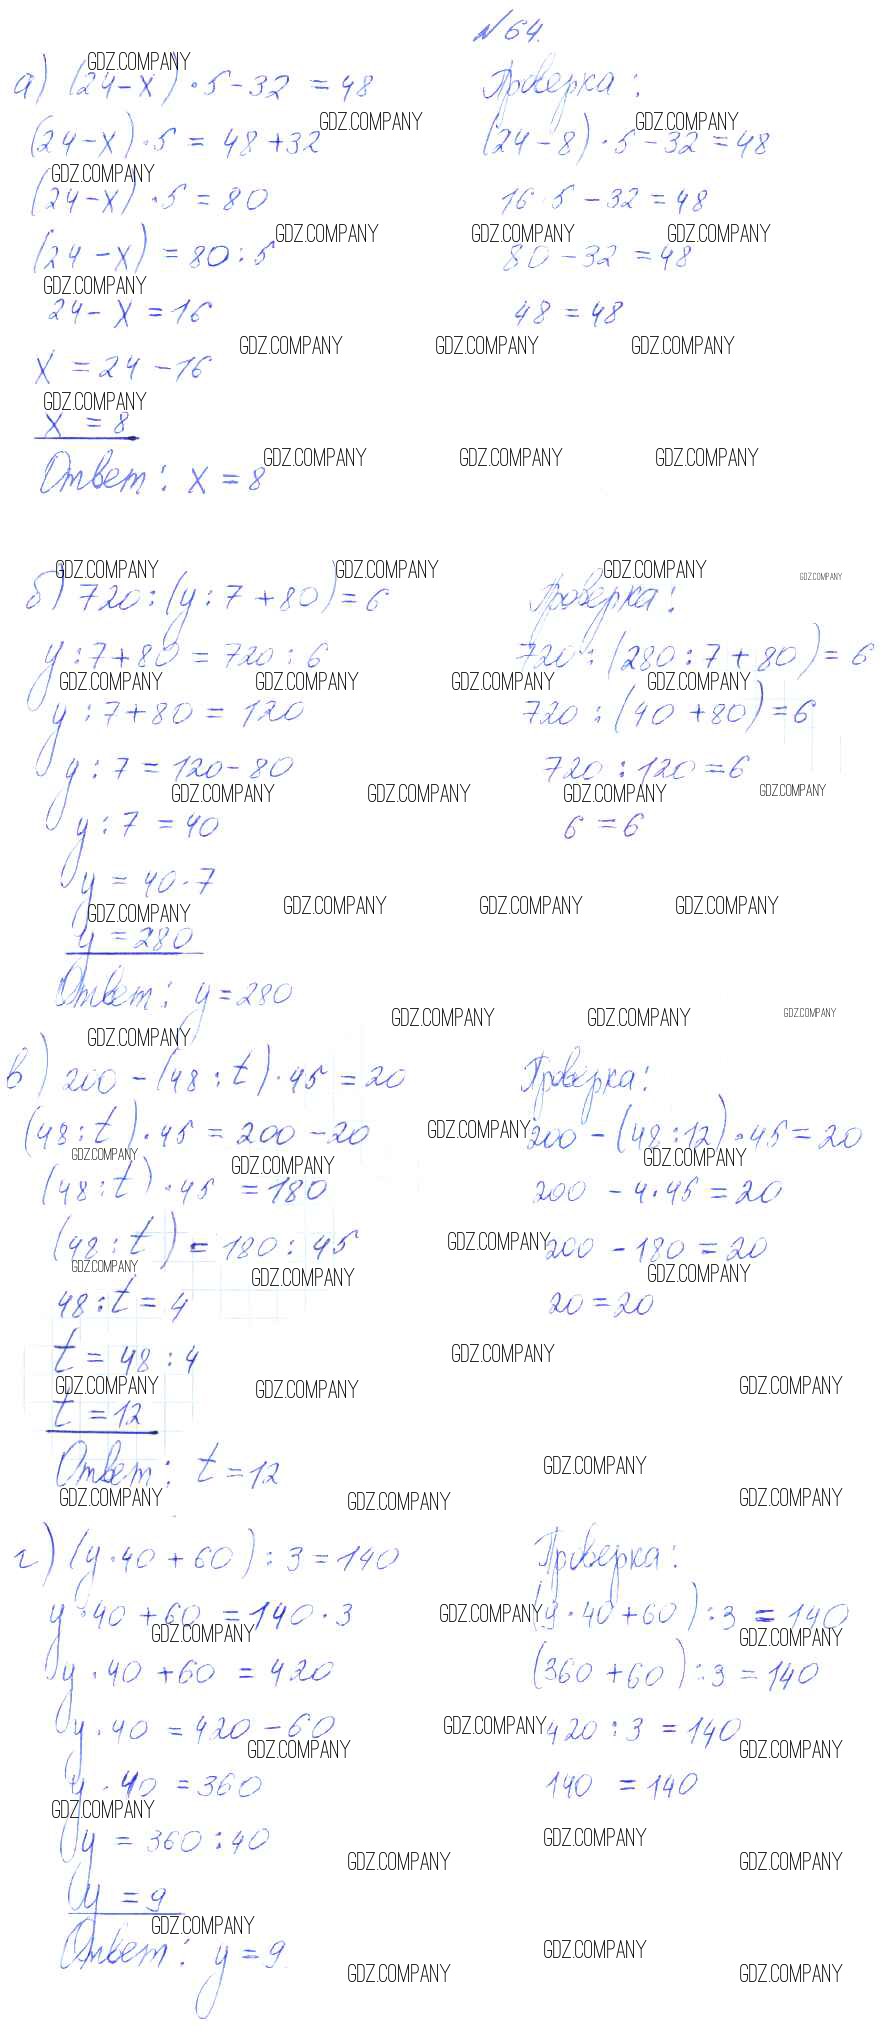 № 64.
а) (24-x)·5-32 = 48
(24-x)·5 = 48+32
(24-x)·5 = 80
(24-x) = 80:5
24-x = 16
x = 24-16
x = 8
Ответ: x = 8
Проверка:
(24-8)·5-32 = 48
16·5-32 = 48
80-32 = 48
48 = 48
б) 720:(y:7+80) = 6
y:7+80 = 720:6
y:7+80 = 120
y:7 = 120-80
y:7 = 40
y = 40·7
y = 280
Ответ: y = 280
Проверка:
720:(280:7+80) = 6
720:(40+80) = 6
720:120 = 6
6 = 6
в) 200-(48:t)·45 = 20
(48:t)·45 = 200-20
(48:t)·45 = 180
(48:t) = 180:45
48:t = 4
t = 48:4
t = 12
Ответ: t = 12
Проверка:
200-(48:12)·45 = 20
200-4·45 = 20
200-180 = 20
20 = 20
г) (y·40+60):3 = 140
y·40+60 = 140·3
y·40+60 = 420
y·40 = 420-60
y·40 = 360
y = 360:40
y = 9
Ответ: y = 9
Проверка:
(9·40+60):3 = 140
(360+60):3 = 140
420:3 = 140
140 = 140
GDZ.COMPANY